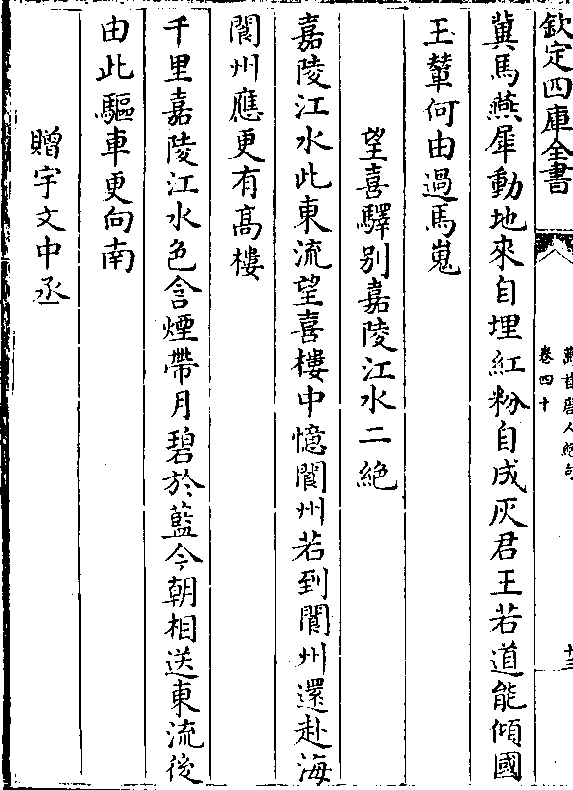 欽定四庫全書
卷四十
冀馬燕犀動地來自埋紅粉自成灰君王若道能傾國
玉輦何由過馬嵬
望喜驛别嘉陵江水二絶
嘉陵江水此東流望喜樓中憶閬州若到閬州還赴海
閬州應更有髙樓
千里嘉陵江水色含煙帶月碧於藍今朝相送東流後
由此驅車更向南
贈宇文中丞